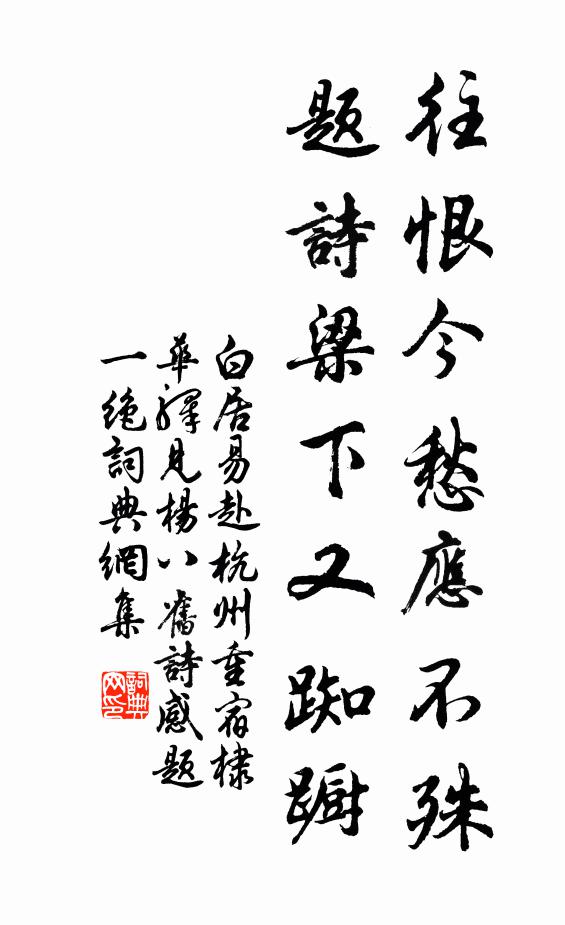 往恨今愁應不殊
題詩梁下又踟躕
白居易赴杭州重宿棣
華驛見楊八舊詩感題
一絕詞典網集
詞典
网印